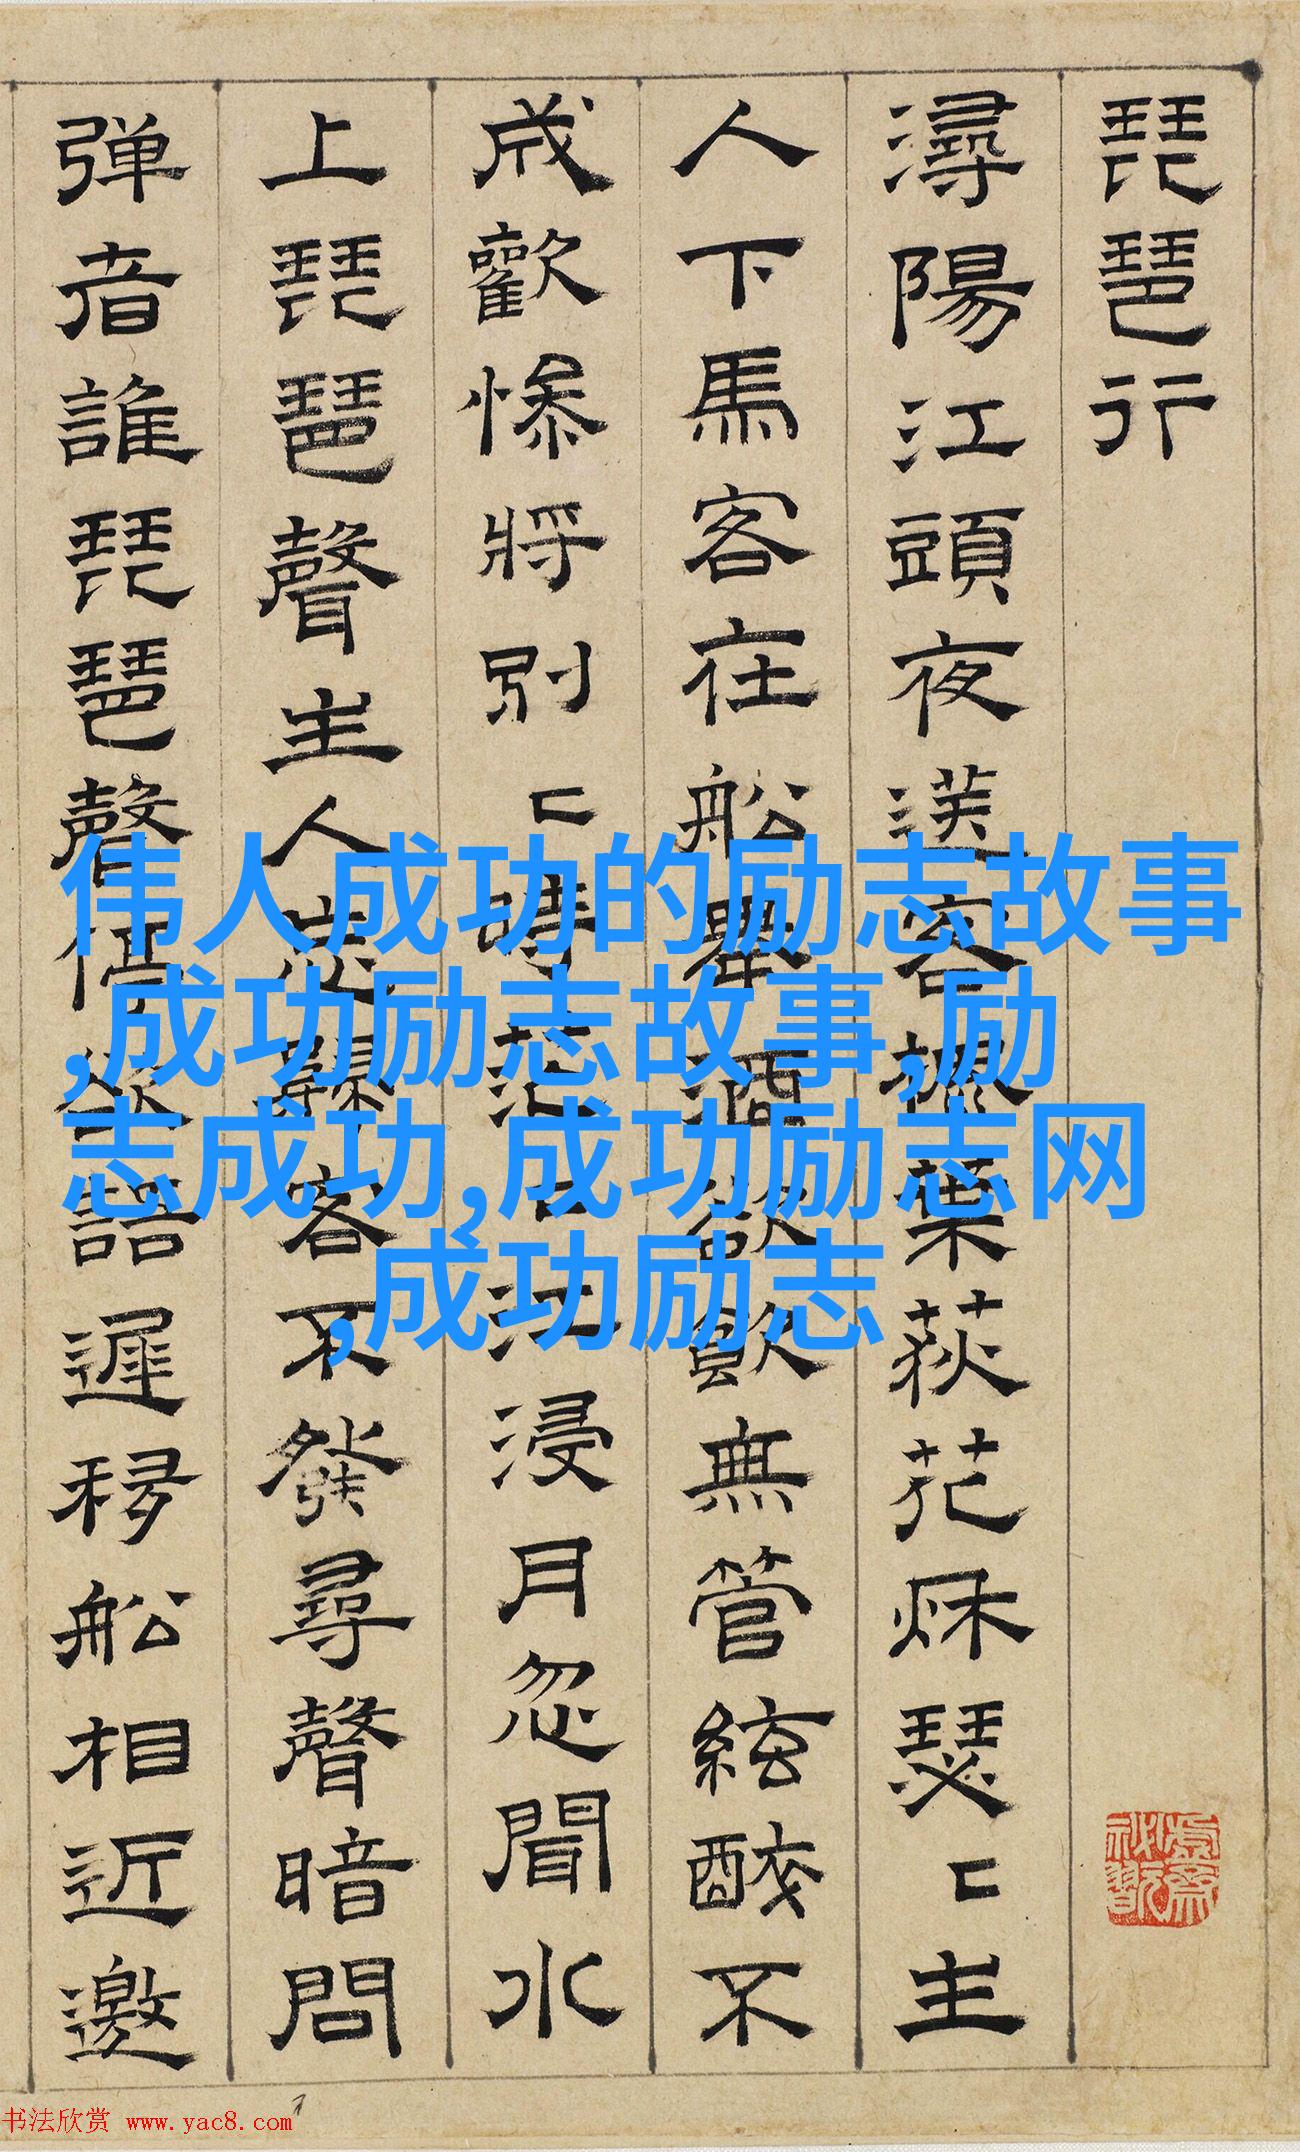 琵琶行
潯陽江頭夜送客楓葉荻花秋瑟〻主
人下馬客在船舉酒欲飲無管絃醉不
成歡慘將別〻時茫〻江浸月忽聞水
上琵琶聲主人忘歸客不發尋聲暗問
弹者誰琵琶聲停欲語遲移船相近邀
伟人成功的励志故事
,成功励志故事,励
志成功,成功励志网
,成功励志
书法欣赏 www.yac8.com